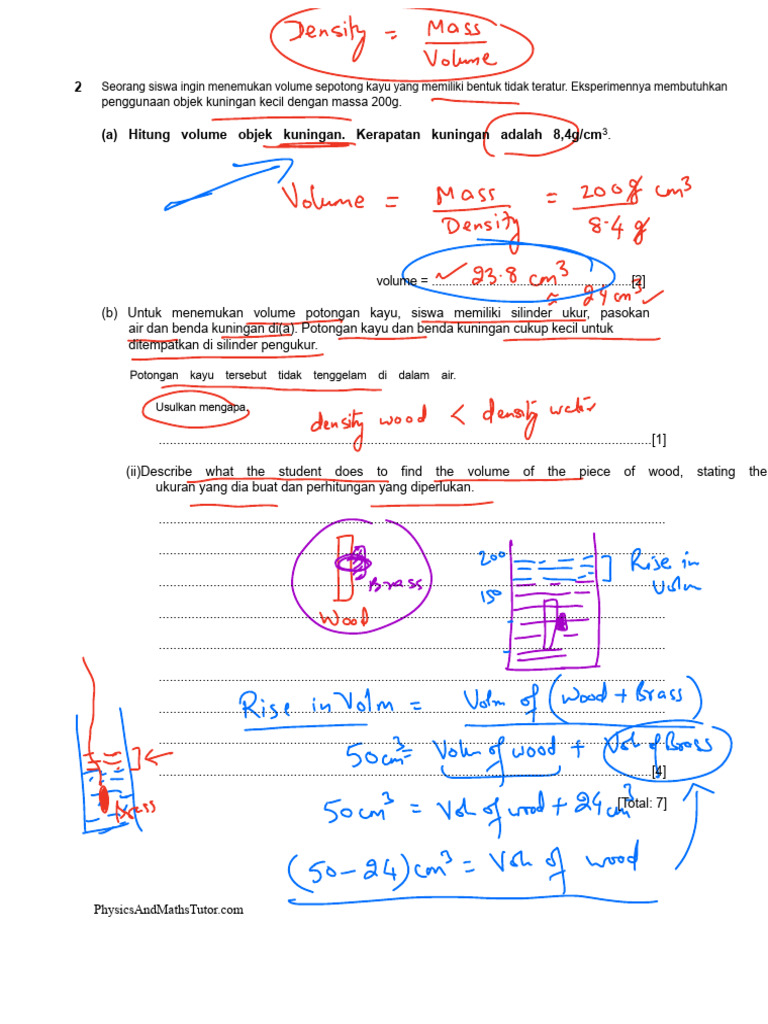 Density = Mass / Volume
2 Seorang siswa ingin menemukan volume sepotong kayu yang memiliki bentuk tidak teratur. Eksperimennya membutuhkan
penggunaan objek kuningan kecil dengan massa 200g.
(a) Hitung volume objek kuningan. Kerapatan kuningan adalah 8,4g/cm³.
Volume = Mass / Density = 200g cm³ / 8.4 g
volume = ........ 23.8 cm³ ........[2]
≈ 24 cm³ ✓
(b) Untuk menemukan volume potongan kayu, siswa memiliki silinder ukur, pasokan
air dan benda kuningan di(a). Potongan kayu dan benda kuningan cukup kecil untuk
ditempatkan di silinder pengukur.
Potongan kayu tersebut tidak tenggelam di dalam air.
Usulkan mengapa,
density wood < density water
........[1]
(ii)Describe what the student does to find the volume of the piece of wood, stating the
ukuran yang dia buat dan perhitungan yang diperlukan.
Brass
Wood
200
150
Rise in
Volm
Rise in Volm = Volm of (Wood + Brass)
50cm³ = Volm of wood + Vol of Brass
[4]
50cm³ = Vol of wood + 24cm³
[Total: 7]
(50 - 24) cm³ = Vol of wood
PhysicsAndMathsTutor.com